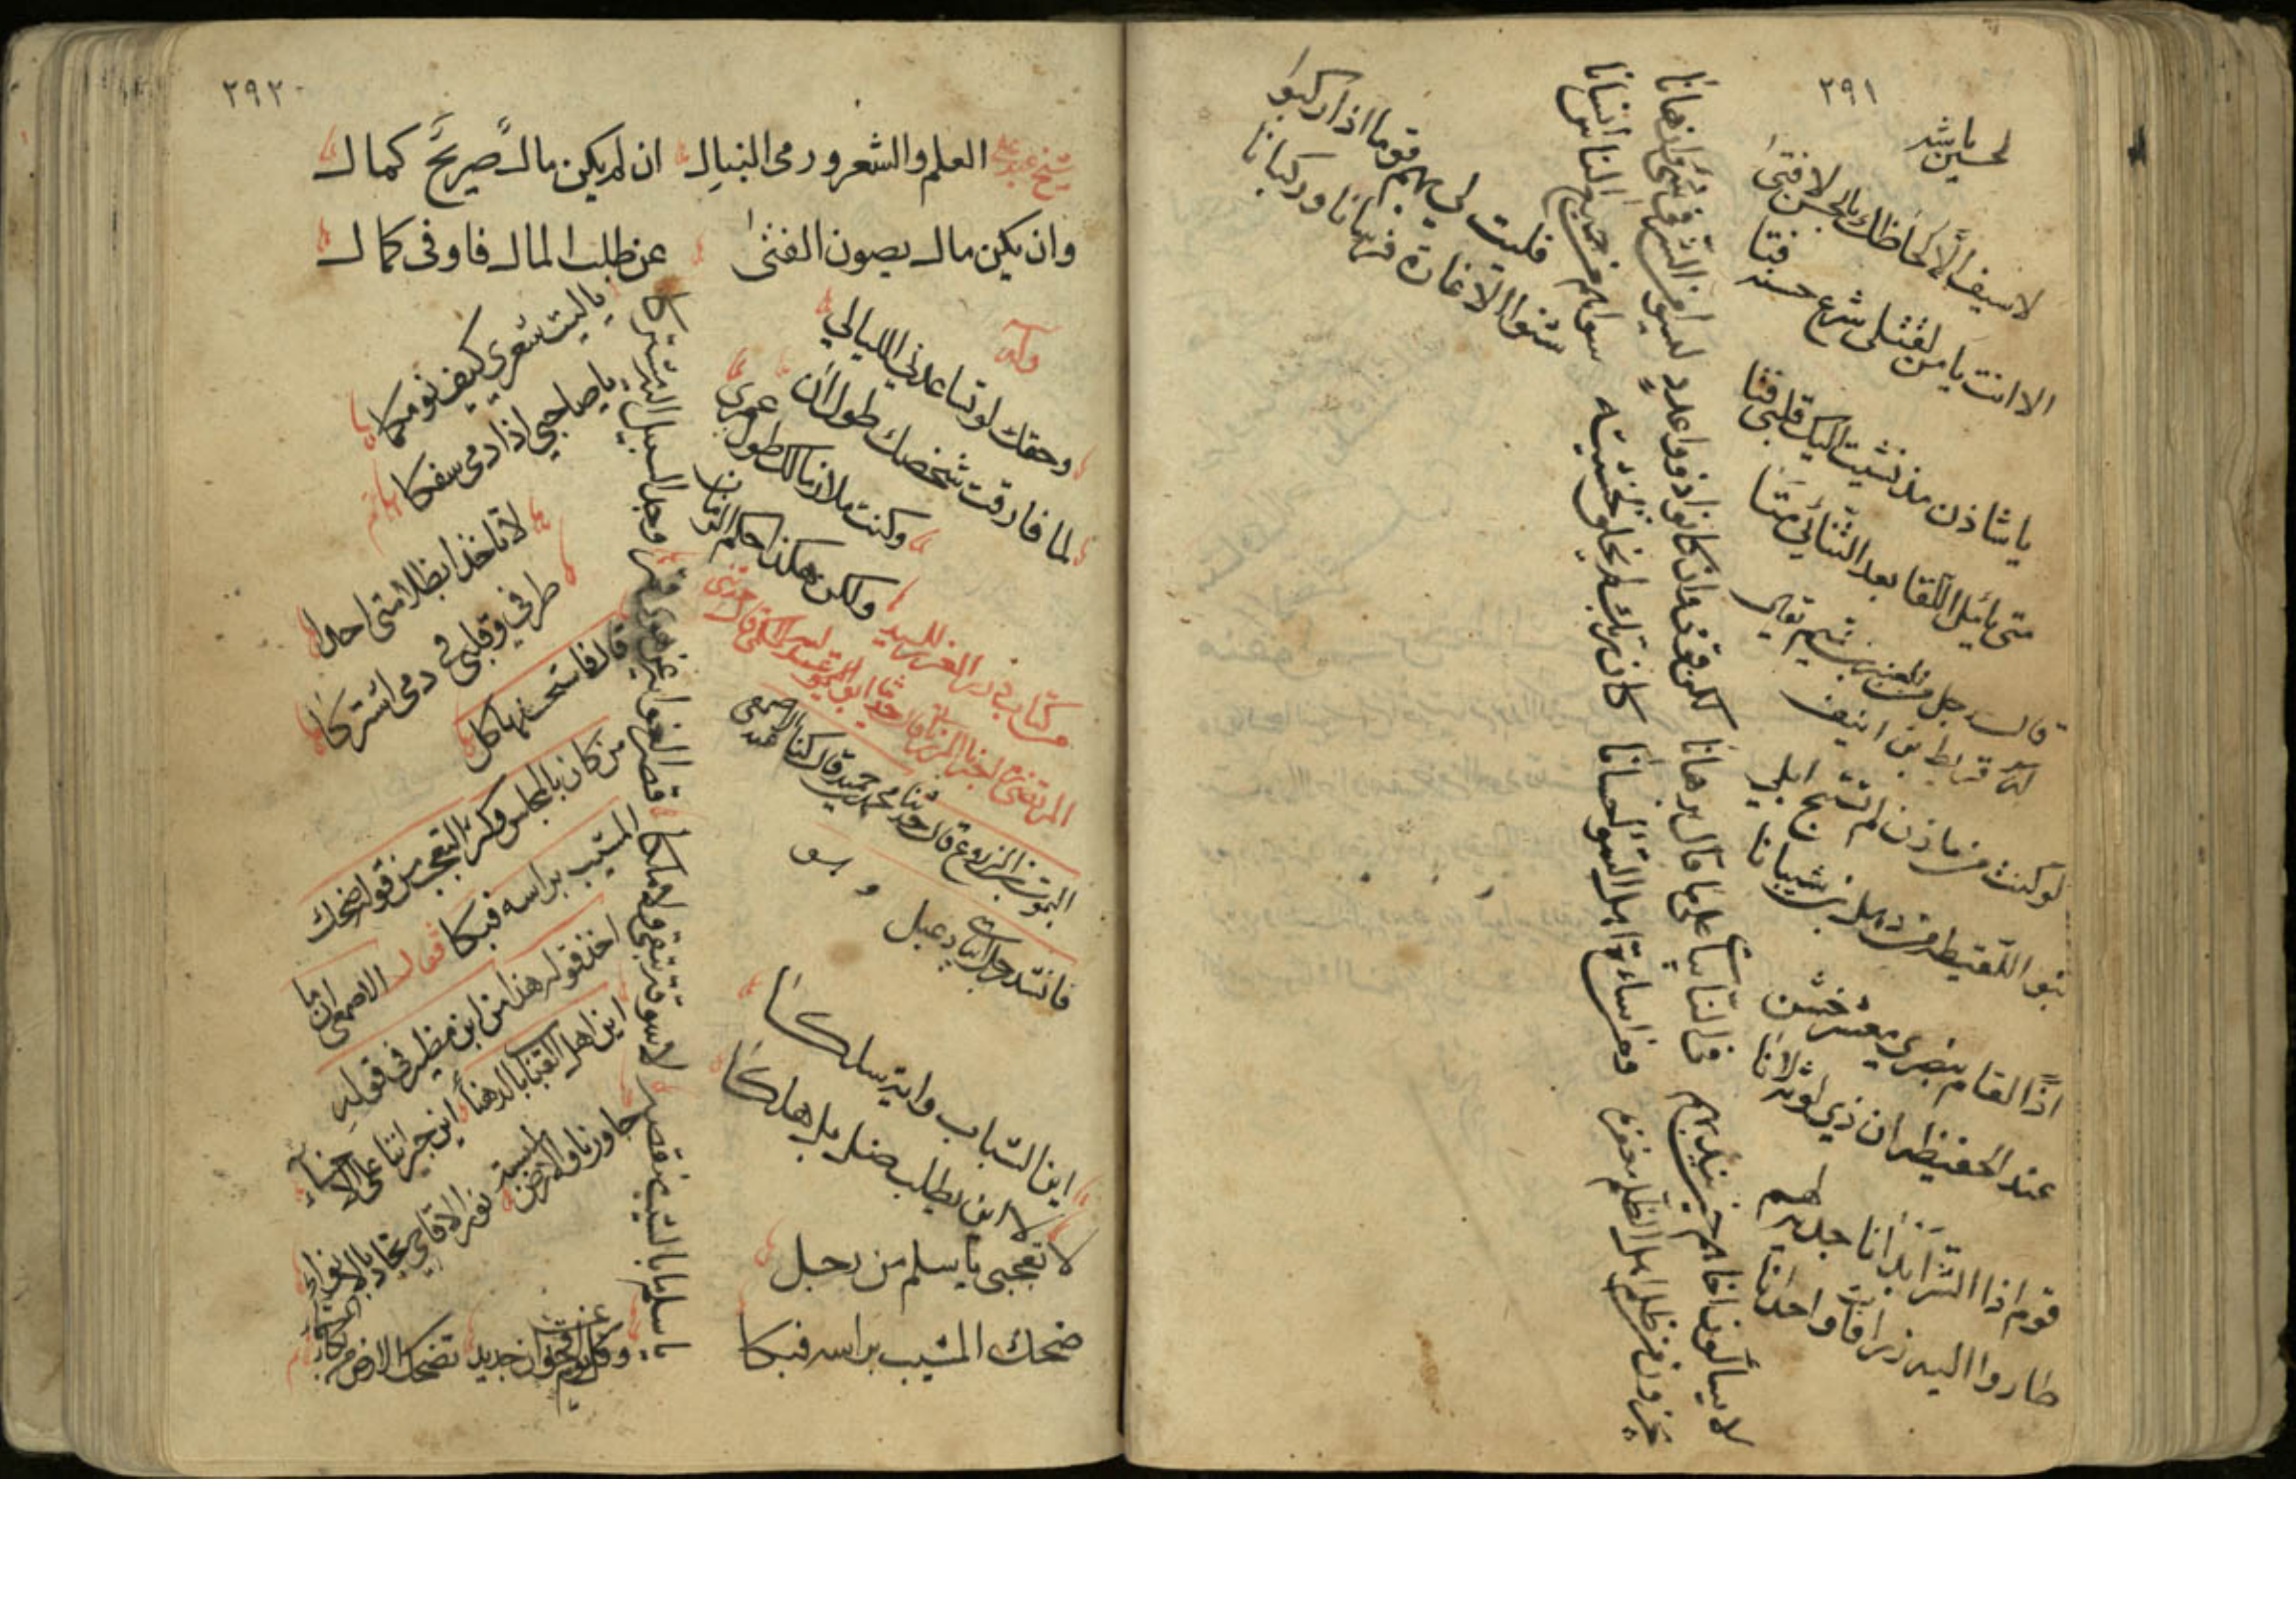 ٢٩١
لحسين باشه
لاسيف الا لحاظك يا لا فتى
الا انت يا من لقتلى شرع حسنه فتا
يا شاذن مذ نشيت اليك قلبي فتا
متى يا مل اللقا بعد الثنائي متا
قال رجل من بلعنبر
اسمه قريط بن انيف
لوكنت من ماذن لم تستبح ابلي
بنو اللقيطة من ذهل بن شيبانا
اذًا لقام بنصري معشر خشن
عند الحفيظة ان ذي لوثة لانا
قوم اذا الشر ابدا نا جذيه لهم
طاروا اليه زرافات واحدانا
لا يسألون اخاهم حين يندبهم في النائبات على ما قال برهانا
لكن قومي وان كانوا ذوو عدد ليسوا من الشر في شئ وان هانا
يجزون من ظلم اهل الظلم مغفرة ومن اساءة اهل السؤ احسانا
كان ربك لم يخلق لخشيته سواهم من جميع الناس انسانا
فليت لي بهم قوما اذا ركبوا
شنوا الاغارة فرسانا وركبانا
٢٩٢
العلم والشعر ورمى النبال ان لم يكن مال صريحً كمال
وان يكن مال يصون الفتى عن طلب المال فاوفى كمال
وله
وحقك لو تساعدني الليالي
لما فارقت شخصك طول
وكنت ملازما لك طول عمري
ولكن هكذا حكم الزمان
من كتاب في الغرر للسيد
المرتضى اخبرنا المرزباني قال
اليموت بن المزروع قال حدثنا محمد بن حميد قال كنا عند الاصمعي
فانشد رجل ابيات دعبل
اين الشباب واية سلكا
لا اين يطلب ضل بل هلكا
لا تعجبي يا سلم من رجل
ضحك المشيب براسه فبكا
يا سلم ما بالشيب منقصة لا سوقة يبقى ولا ملكا
قصر الغواية عن هوى قمر وجد السبيل اليه مشتركا
يا ليت شعري كيف نومكما
يا صاحبي اذا دمي سفكا
لا تاخذا بظلامتى احدا
طرفي وقلبي في دمى اشتركا
قال فاستحسنها كل
من كان بالمجلس وكثر التعجب من قوله ضحك
المشيب براسه فبكا فقال الاصمعي انما
اخذ قوله هذا من ابن مطير في قوله
اين اهل القباب بالدهناء اين جيراننا على الاحساء
جاورونا والارض ملبسة نور الاقاحي تجاد بالانواء
كل يوم باقحوان جديد تضحك الارض من بكاء